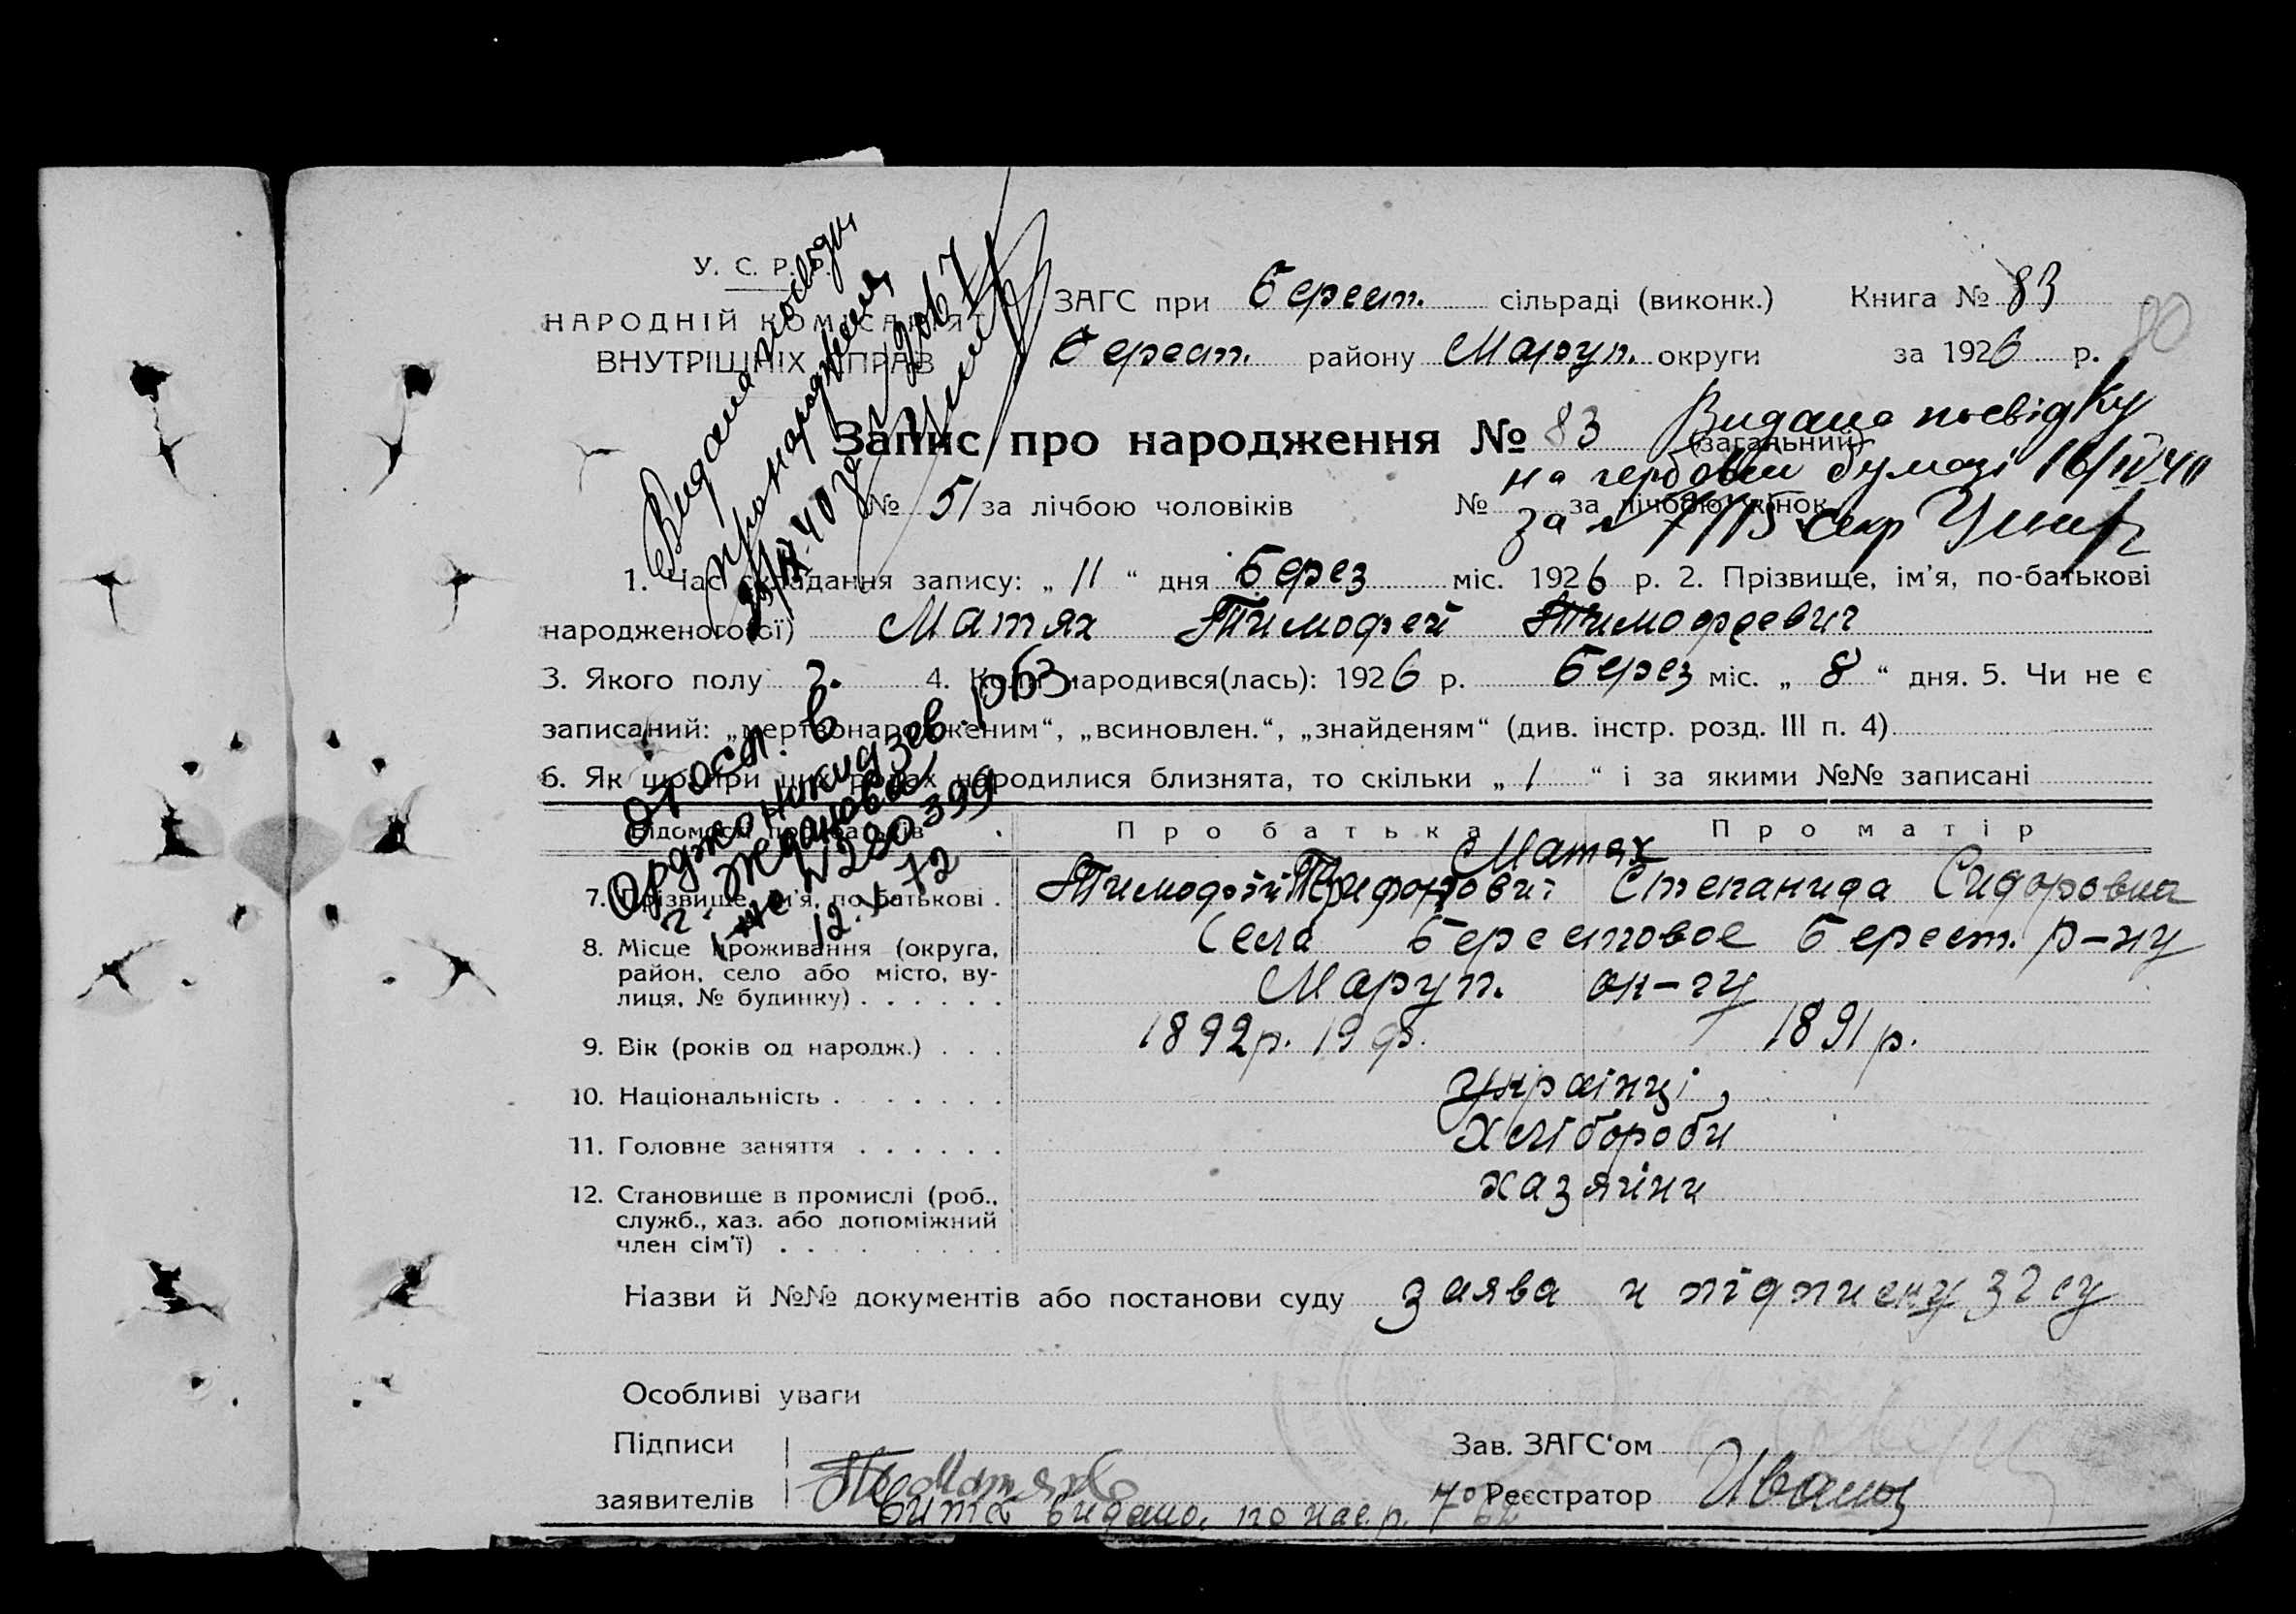 У. С. Р. Р.
НАРОДНІЙ КОМІСАРІЯТ
ВНУТРІШНІХ СПРАВ
ЗАГС при Берест. сільраді (виконк.) Книга № 83
Берест. району Маруп. округи за 1926 р.
80
Запис про народження № 83 (загальний)
№ 51 за лічбою чоловіків № за лічбою жінок
Видано посвідку
на гербовій бумазі 16/IV 40
за № 7/15 секр
Видано посвідку
про народження
1. Час складання запису: „ 11 “ дня Берез міс. 1926 р. 2. Прізвище, ім’я, по-батькові
народженого(ої) Матях Тимофей Тимофеевич
3. Якого полу ч. 4. Коли народився(лась): 1926 р. Берез міс. „ 8 “ дня. 5. Чи не є
записаний: „мертвонародженим“, „всиновлен.“, „знайденям“ (див. інстр. розд. III п. 4)
6. Як що при цих родах народилися близнята, то скільки „ 1 “ і за якими №№ записані
в
Орджоникидзев. 1063
г. Жданова
1-жс № 280399
12.V.72
Відомості про батьків Про батька Про матір
Матях
7. Прізвище, ім’я, по-батькові . Тимофій Трифонович Степанида Сидоровна
8. Місце проживання (округа, Села Берестовое Берест. р-ну
район, село або місто, ву- Маруп. ок-гу
лиця, № будинку) . . . . . .
9. Вік (років од народж.) . . . 1892р. 19 ф. 1891р.
10. Національність . . . . . . . українці
11. Головне заняття . . . . . . хлібороби
12. Становище в промислі (роб., хазяіни
служб., хаз. або допоміжний
член сім’ї) . . . . . . . .
Назви й №№ документів або постанови суду заява и підписку
Особливі уваги
Підписи Зав. ЗАГС‘ом
заявителів Реєстратор Иванов
видано. по